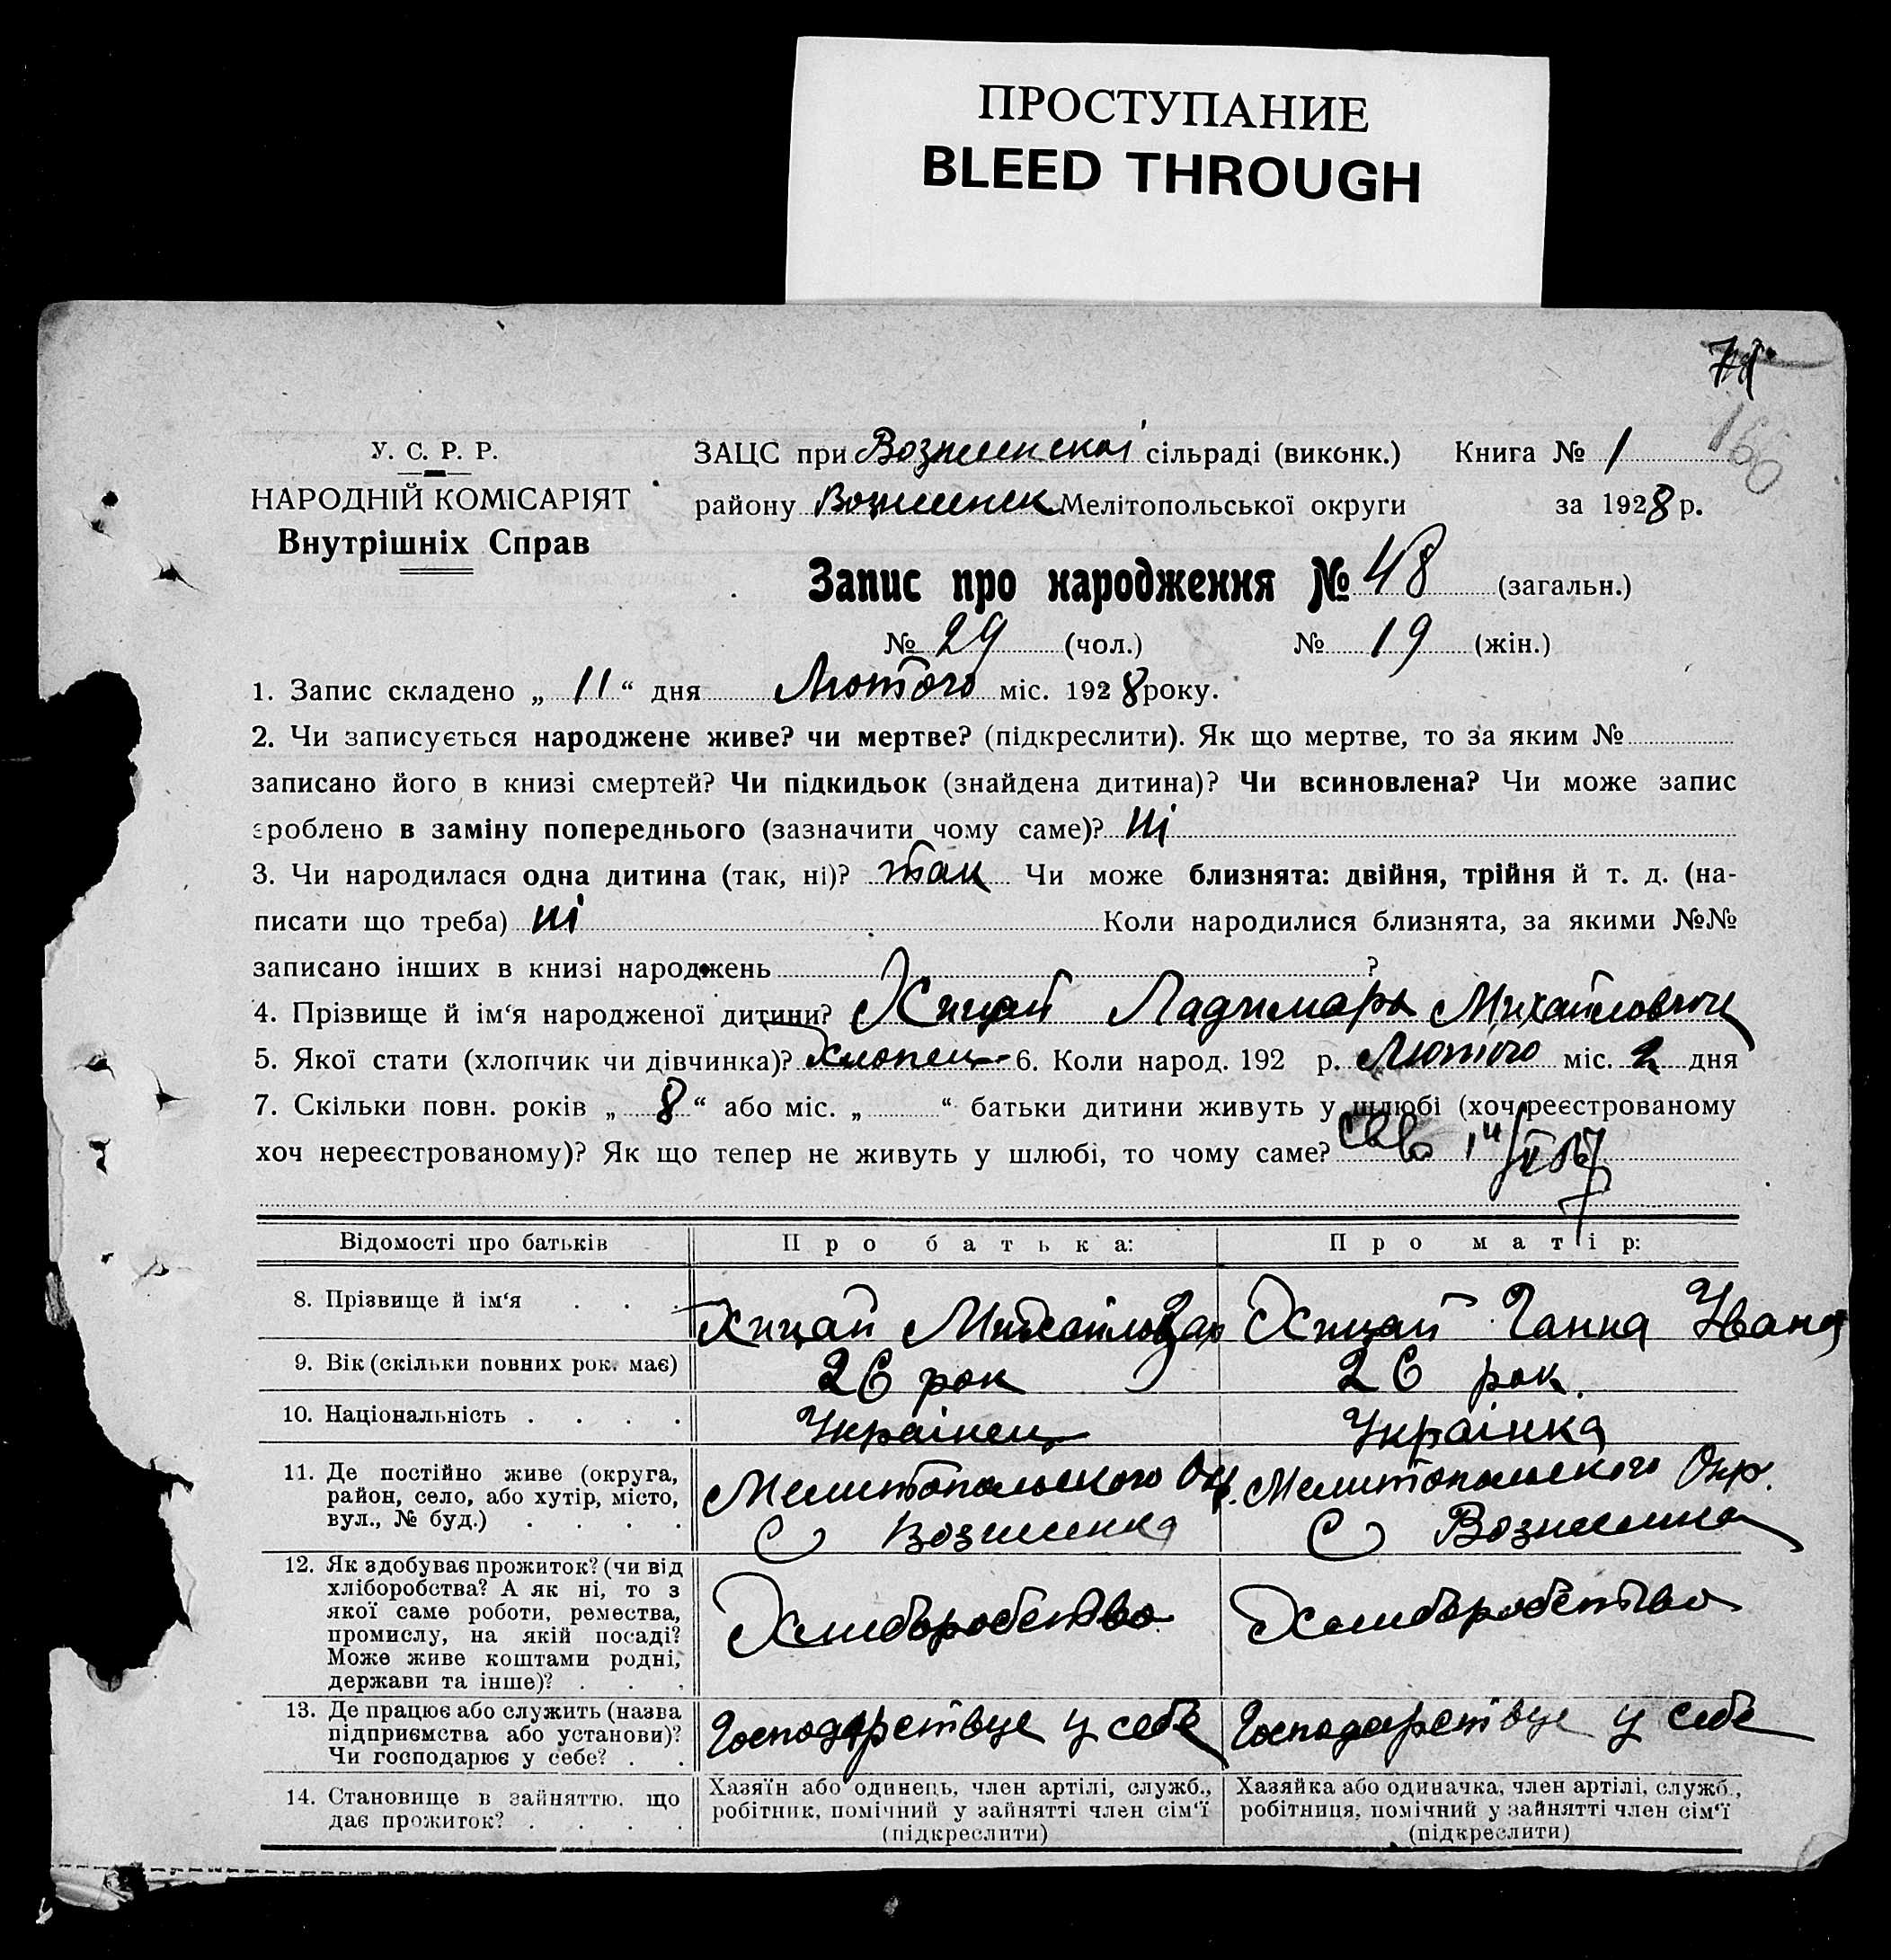 ПРОСТУПАНИЕ
BLEED THROUGH
166
У. С. Р. Р.
НАРОДНІЙ КОМІСАРІЯТ
Внутрішніх Справ
ЗАЦС при сільраді (виконк.) Книга № 1
району Мелітопольської округи за 1928 р.
Запис про народження № 48 (загальн.)
№ 29 (чол.) № 19 (жін.)
1. Запис складено „ 11 “ дня Лютого міс. 1928 року.
2. Чи записується народжене живе? чи мертве? (підкреслити). Як що мертве, то за яким №
записано його в книзі смертей? Чи підкидьок (знайдена дитина)? Чи всиновлена? Чи може запис
зроблено в заміну попереднього (зазначити чому саме)? Ні
3. Чи народилася одна дитина (так, ні)? так Чи може близнята: двійня, трійня й т. д. (на-
писати що треба) ні Коли народилися близнята, за якими №№
записано інших в книзі народжень ?
4. Прізвище й ім‘я народженої дитини? Хицай Ладимарь Михайлович
5. Якої стати (хлопчик чи дівчинка)? Хлопец 6. Коли народ. 192 р. Лютого міс. 2 дня
7. Скільки повн. років „ 8 “ або міс. „ “ батьки дитини живуть у шлюбі (хоч реєстрованому
хоч нереєстрованому)? Як що тепер не живуть у шлюбі, то чому саме?
Відомості про батьків Про батька: Про матір:
8. Прізвище й ім‘я . . . Хицай Хицай Ганна Івана
9. Вік (скільки повних рок. має) 26 рок 26 рок.
10. Національність . . . . Українец Українка
11. Де постійно живе (округа,
район, село, або хутір, місто,
вул., № буд.) . . . .
Мелитопольского Окр.
С Возшенка
Мелитопольского Окр.
С Возшенка
12. Як здобуває прожиток? (чи від
хліборобства? А як ні, то з
якої саме роботи, ремества,
промислу, на якій посаді?
Може живе коштами родні,
держави та інше)? . . .
Хлиборобство
Хлиборобство
13. Де працює або служить (назва
підприємства або установи)?
Чи господарює у себе? . .
Господарствує у себе
Господарствує у себе
14. Становище в зайняттю, що
дає прожиток? . . . .
Хазяїн або одинець, член артілі, служб.,
робітник, помічний у зайнятті член сім‘ї
(підкреслити)
Хазяйка або одиначка, член артілі, служб.,
робітниця, помічний у зайнятті член сім‘ї
(підкреслити)